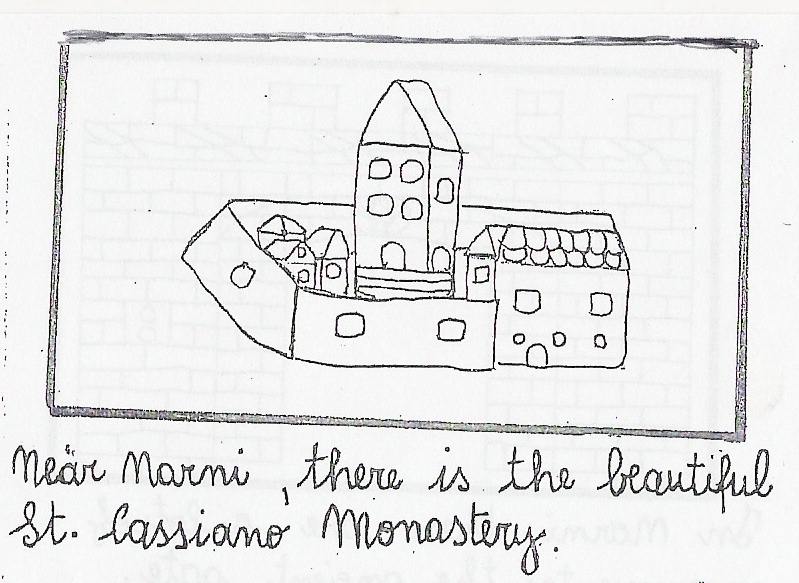 Near Narni, there is the beautiful
St. Cassiano Monastery.